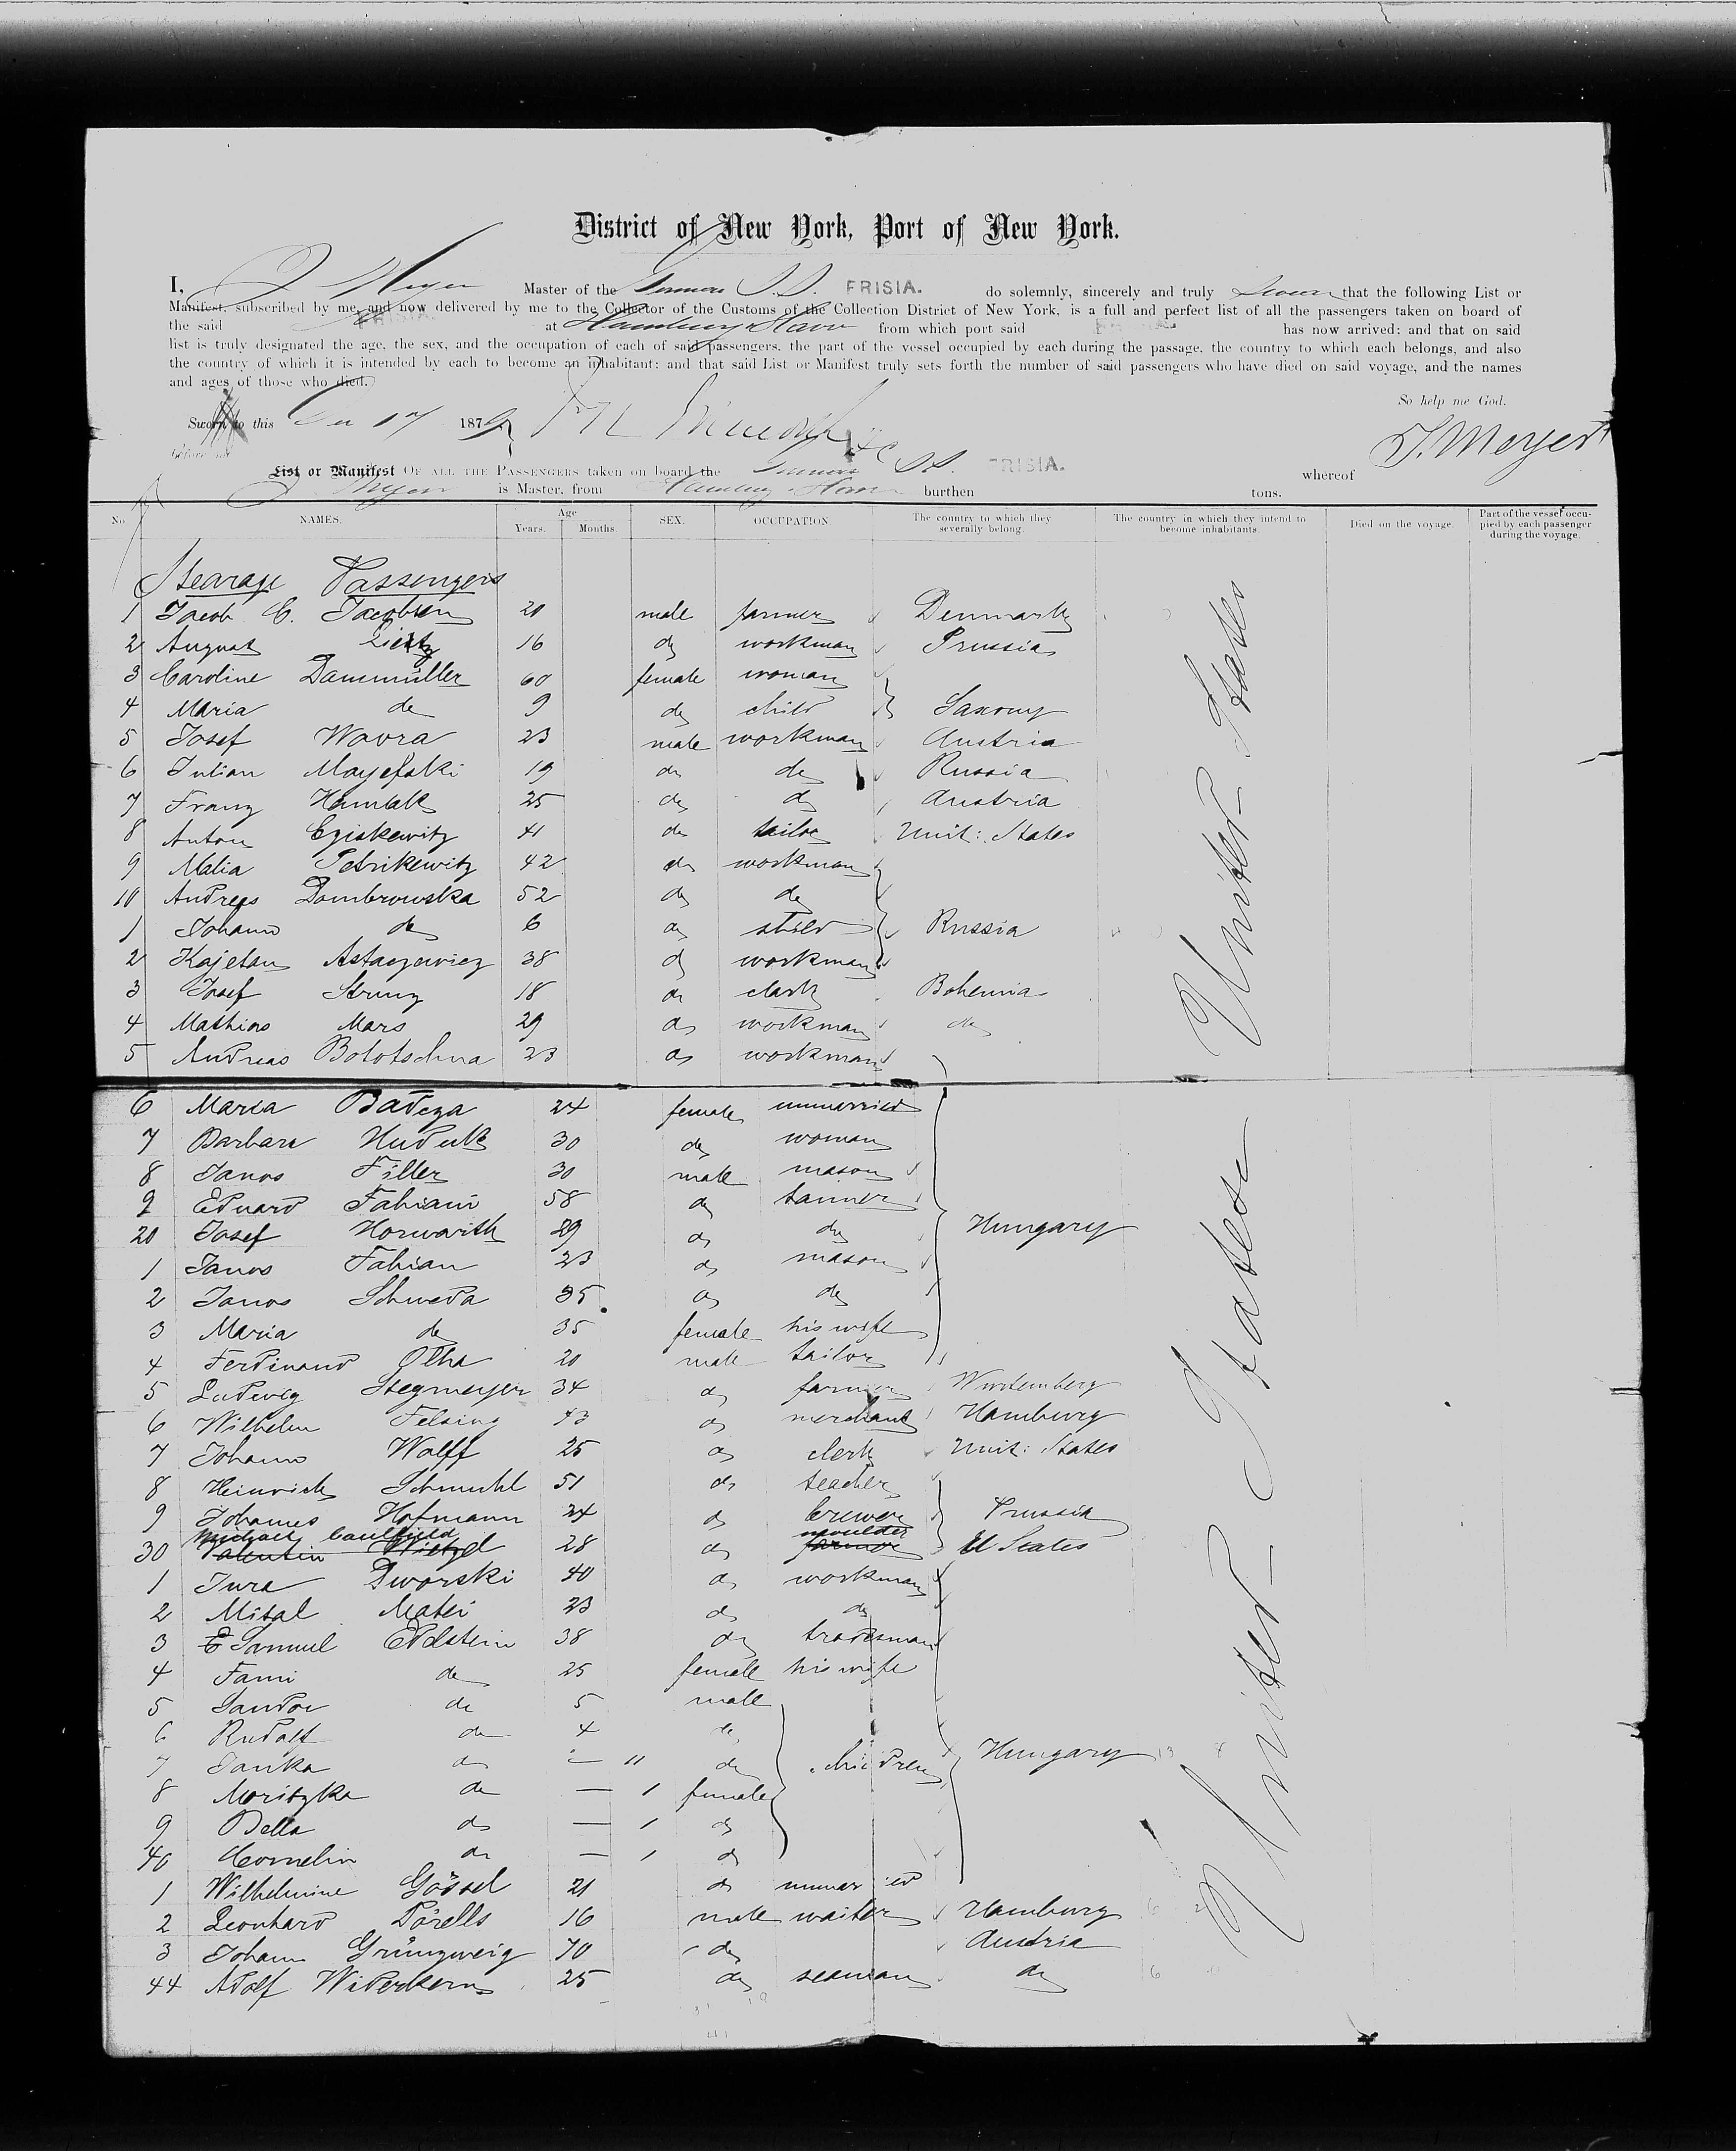 District of New York, Port of New York.
I, J Meyer Master of the German S.S. FRISIA. do solemnly, sincerely and truly swear that the following List or
Manifest, subscribed by me, and now delivered by me to the Collector of the Customs of the Collection District of New York, is a full and perfect list of all the passengers taken on board of
the said FRISIA. at Hamburg & Havre from which port said has now arrived: and that on said
list is truly designated the age, the sex, and the occupation of each of said passengers, the part of the vessel occupied by each during the passage, the country to which each belongs, and also
the country of which it is intended by each to become an inhabitant; and that said List or Manifest truly sets forth the number of said passengers who have died on said voyage, and the names
and ages of those who died.
So help me God.
Sworn to this 17 1879
before me
J. Meyer
List or Manifest OF ALL THE PASSENGERS taken on board the German SS. FRISIA. whereof
J Meyer is Master, from Hamburg & Havre burthen tons.
No. NAMES. Age Years. Months. SEX. OCCUPATION. The country to which they severally belong. The country in which they intend to become inhabitants. Died on the voyage. Part of the vessel occupied by each passenger during the voyage.
Stearage Passengers
1 Jacob C. Jacobsen 20 male farmer Denmark
2 August 16 do workman Prussia
3 Caroline Dammüller 60 female woman
4 Maria do 9 do child Saxony
5 Josef Wovra 23 male workman Austria
6 Julian Mayefski 19 do do Russia
7 Franz 25 do do Austria
8 Anton Egiskewitz 41 do tailor Unit: States
9 Malia Petrikewitz 42 do workman
10 Andreas Dombrowska 52 do do
1 Johann do 6 do child Russia
2 Kajetan Astaczewicz 38 do workman
3 Josef Strunz 18 do clerk Bohemia
4 Mathias Mars 29 do workman do
5 Andreas Bolotschna 23 do workman
6 Maria Badeza 24 female unmarried
7 Barbara Huduk 30 do woman
8 Janos Filler 30 male mason
9 Eduard Fabiani 58 do tanner
20 Josef Horwarith 29 do do Hungary
1 Janos Fabian 23 do mason
2 Janos Schweda 35 do do
3 Maria do 35 female his wife
4 Ferdinand Olha 20 male tailor
5 Ludwig Stegmeyer 34 do farmer Wurtemberg
6 Wilhelm Felsing 43 do merchant Hamburg
7 Johann Wolff 25 do clerk Unit: States
8 Heinrich Schmuhl 51 do teacher
9 Johannes Hofmann 24 do brewer Prussia
Michael Caulfield moulder
30 Valentin Wietzel 28 do farmer U States
1 Jura Dworski 40 do workman
2 Misal Matei 23 do do
3 Samuel Edelstein 38 do tradesman
4 Fami do 25 female his wife
5 Sandor do 5 male
6 Rudolf do 4 do
7 Janka do — 11 do children Hungary
8 Moritzka do — 1 female
9 Bella do — 1 do
40 Cornelin do — 1 do
1 Wilhelmine Gössel 21 do unmarried
2 Leonhard Pörells 16 male waiter Hamburg
3 Johann Grünzweig 70 do Austria
44 Adolf Widerkern 25 do seaman do
United States
United States